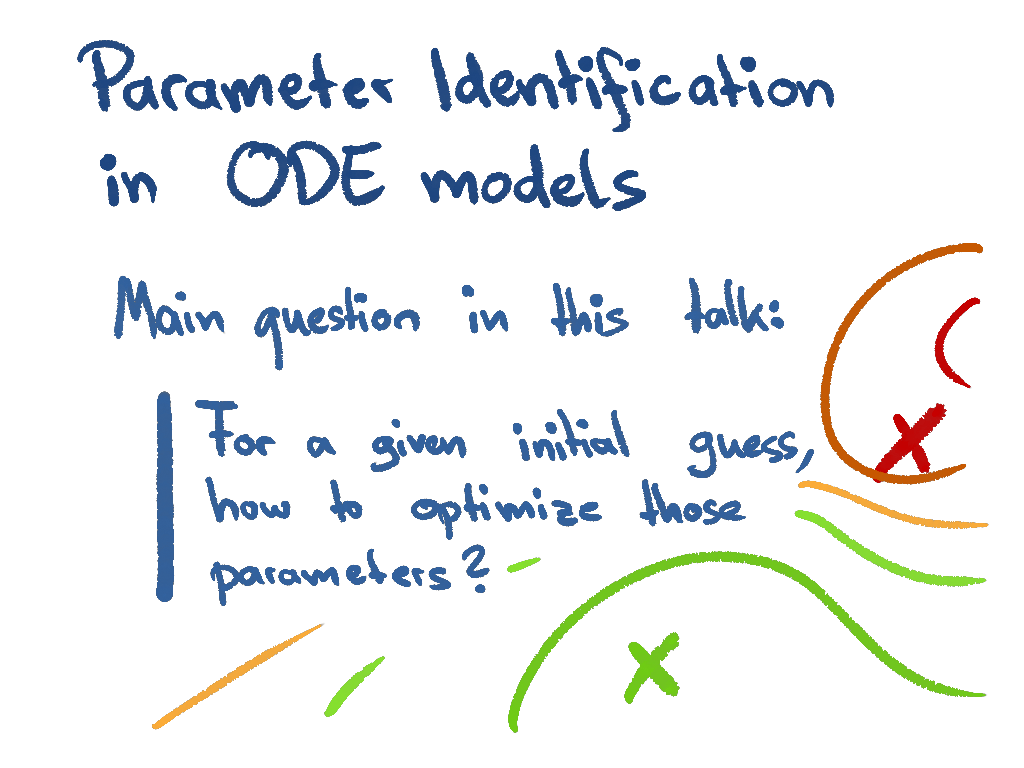 Parameter Identification
in ODE models
Main question in this talk:
For a given initial guess,
how to optimize those
parameters?